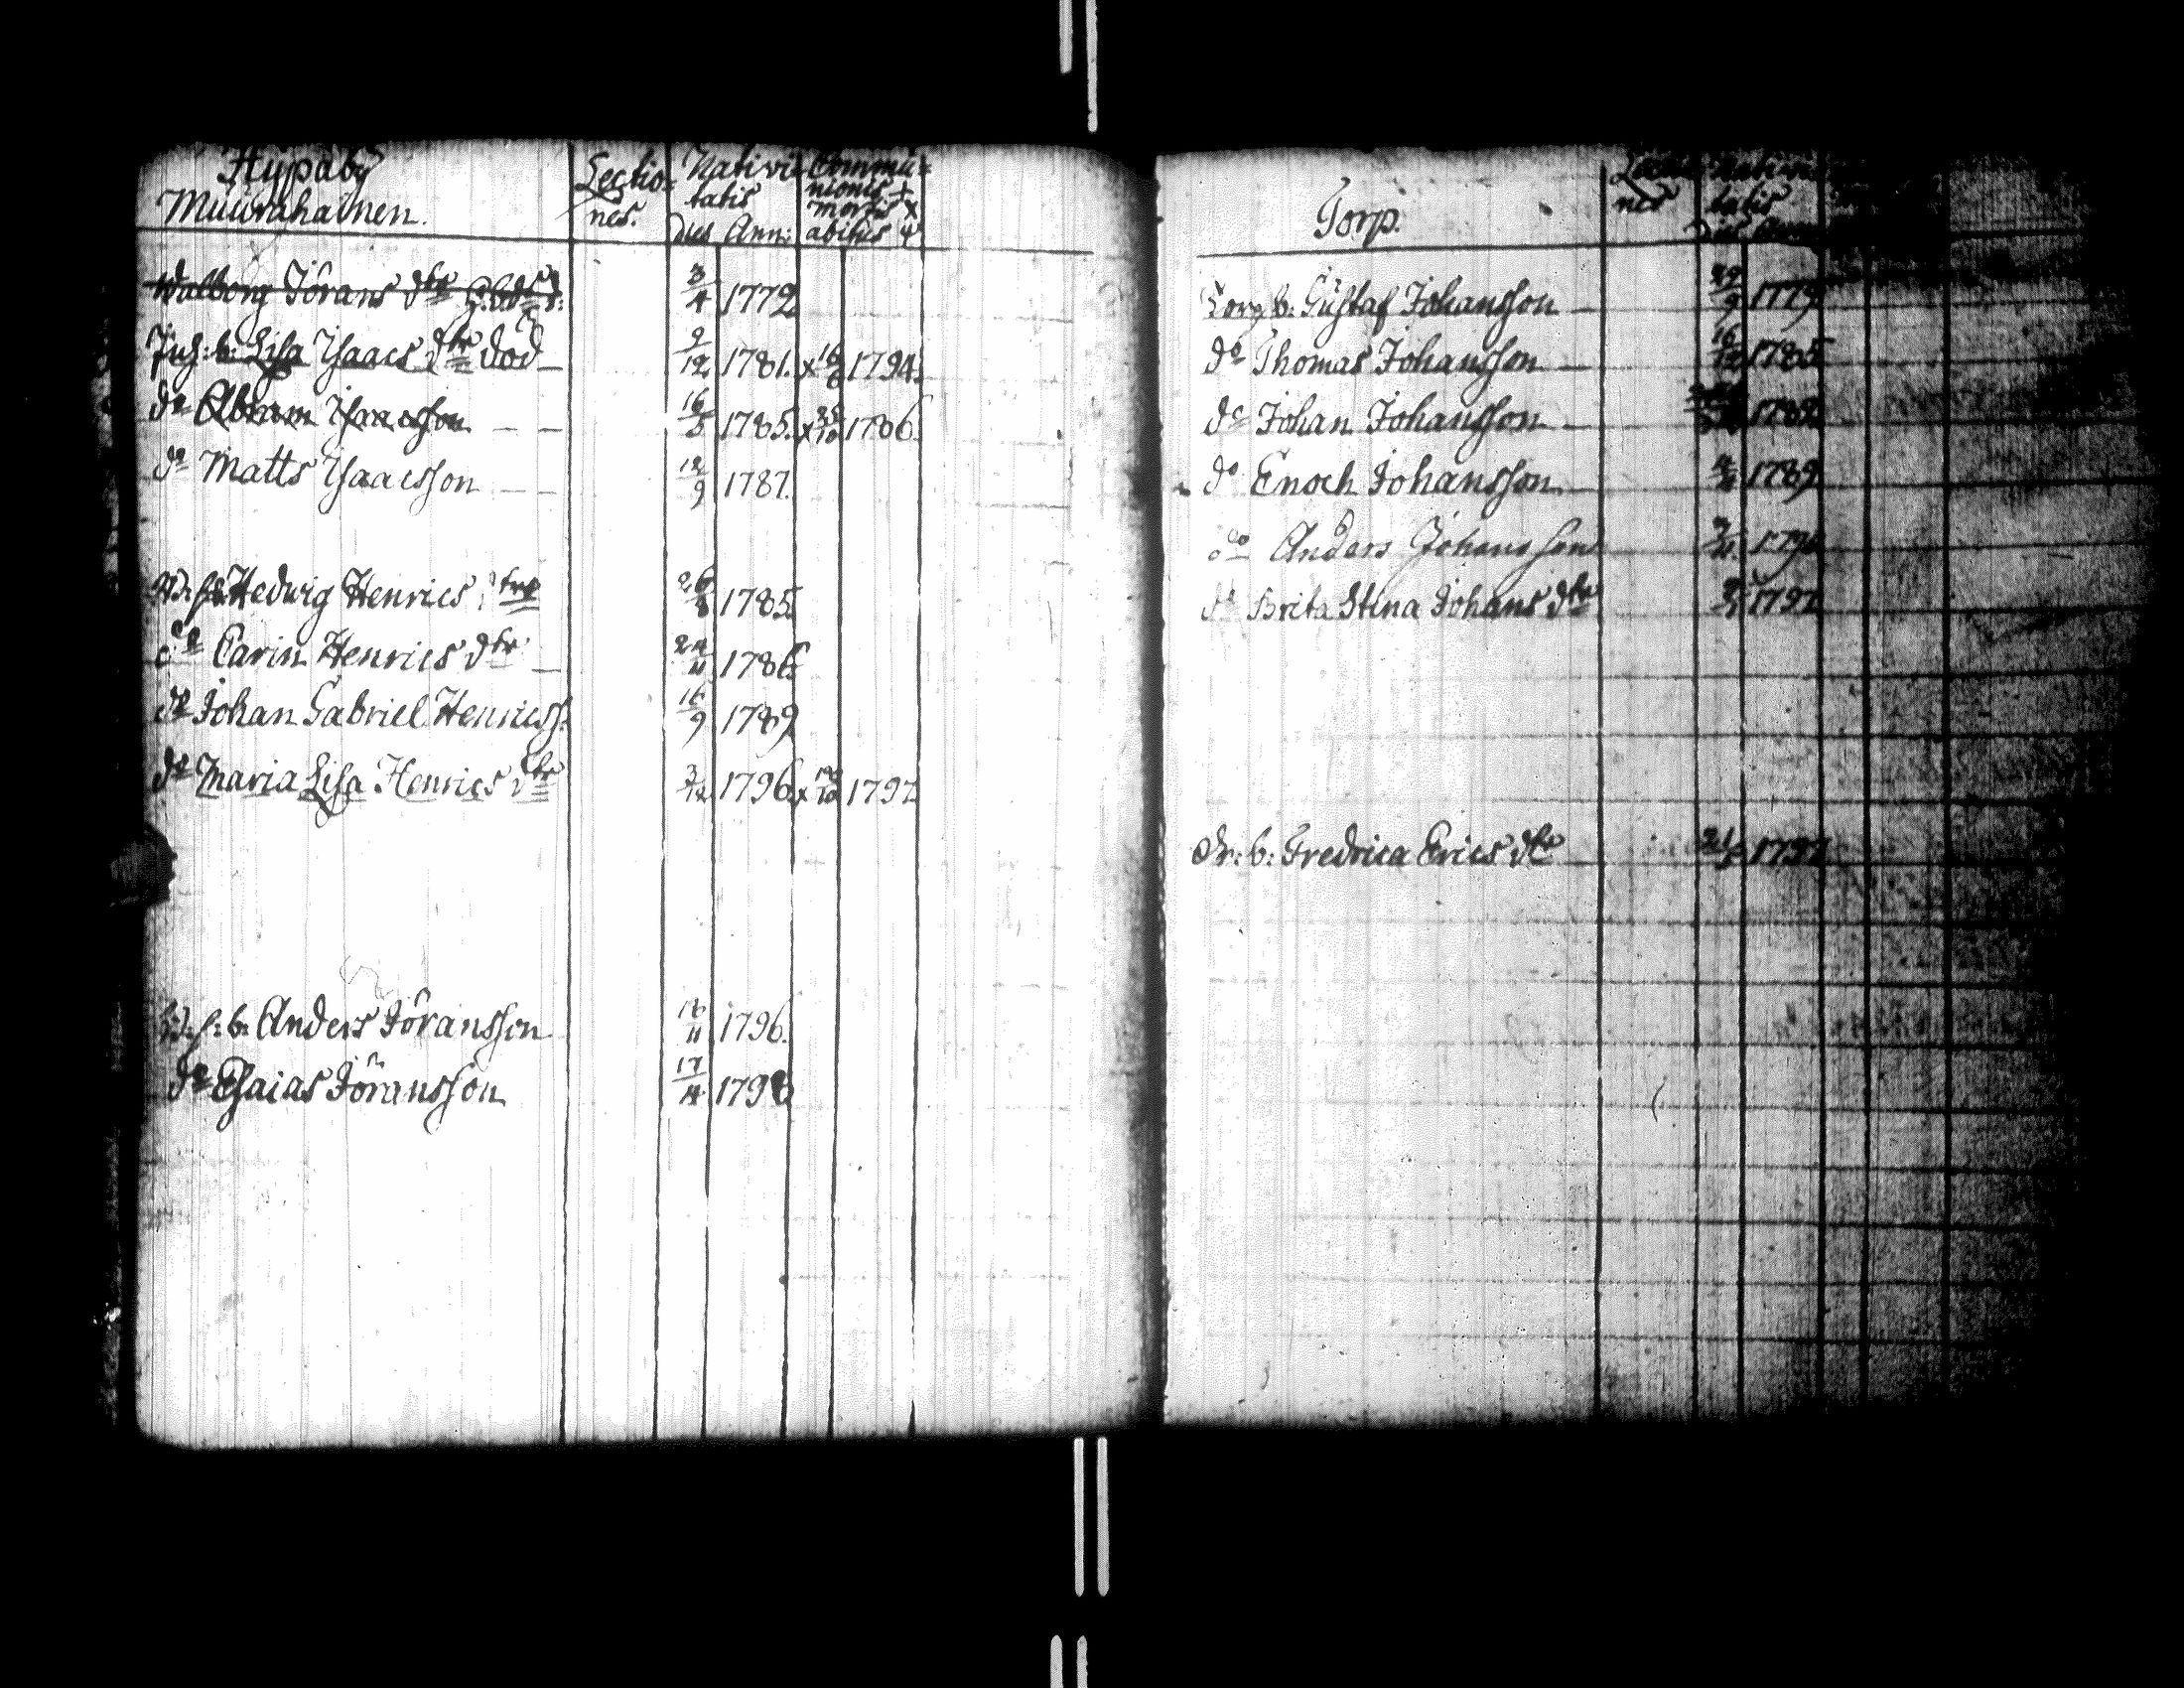 Hypaby
Muurahainen.
Lectio=
nes.
Nativi=
tatis
Dies Ann:
Commu=
nionis +
Mortis x
abitus
Walborg Jörans dtr 3/4 1772
Inh: b: Lisa Isaacs dtr död 9/12 1781. x 16/8 1794.
do Abram Isaacsson 16/5 1785. x 25/10 1786.
do Matts Isaacsson 12/9 1787.
Hedwig Henrics dtr 26/8 1785
do Carin Henrics dtr 24/11 1786.
do Johan Gabriel Henricss. 16/9 1789
do Maria Lisa Henrics dtr 3/12 1796 x 1797
b: Anders Jöransson 18/11 1796.
do Esaias Jöransson 17/4 1798
Torp.
nes
tatis
Torp b: Gustaf Johansson 29/9 1779
do Thomas Johansson 16/12 1785
do Johan Johansson
do Enoch Johansson 1789
do Anders Johansson
do Brita Stina Johans dtr 1797
Dr: b: Fredrica Erics dtr 1797